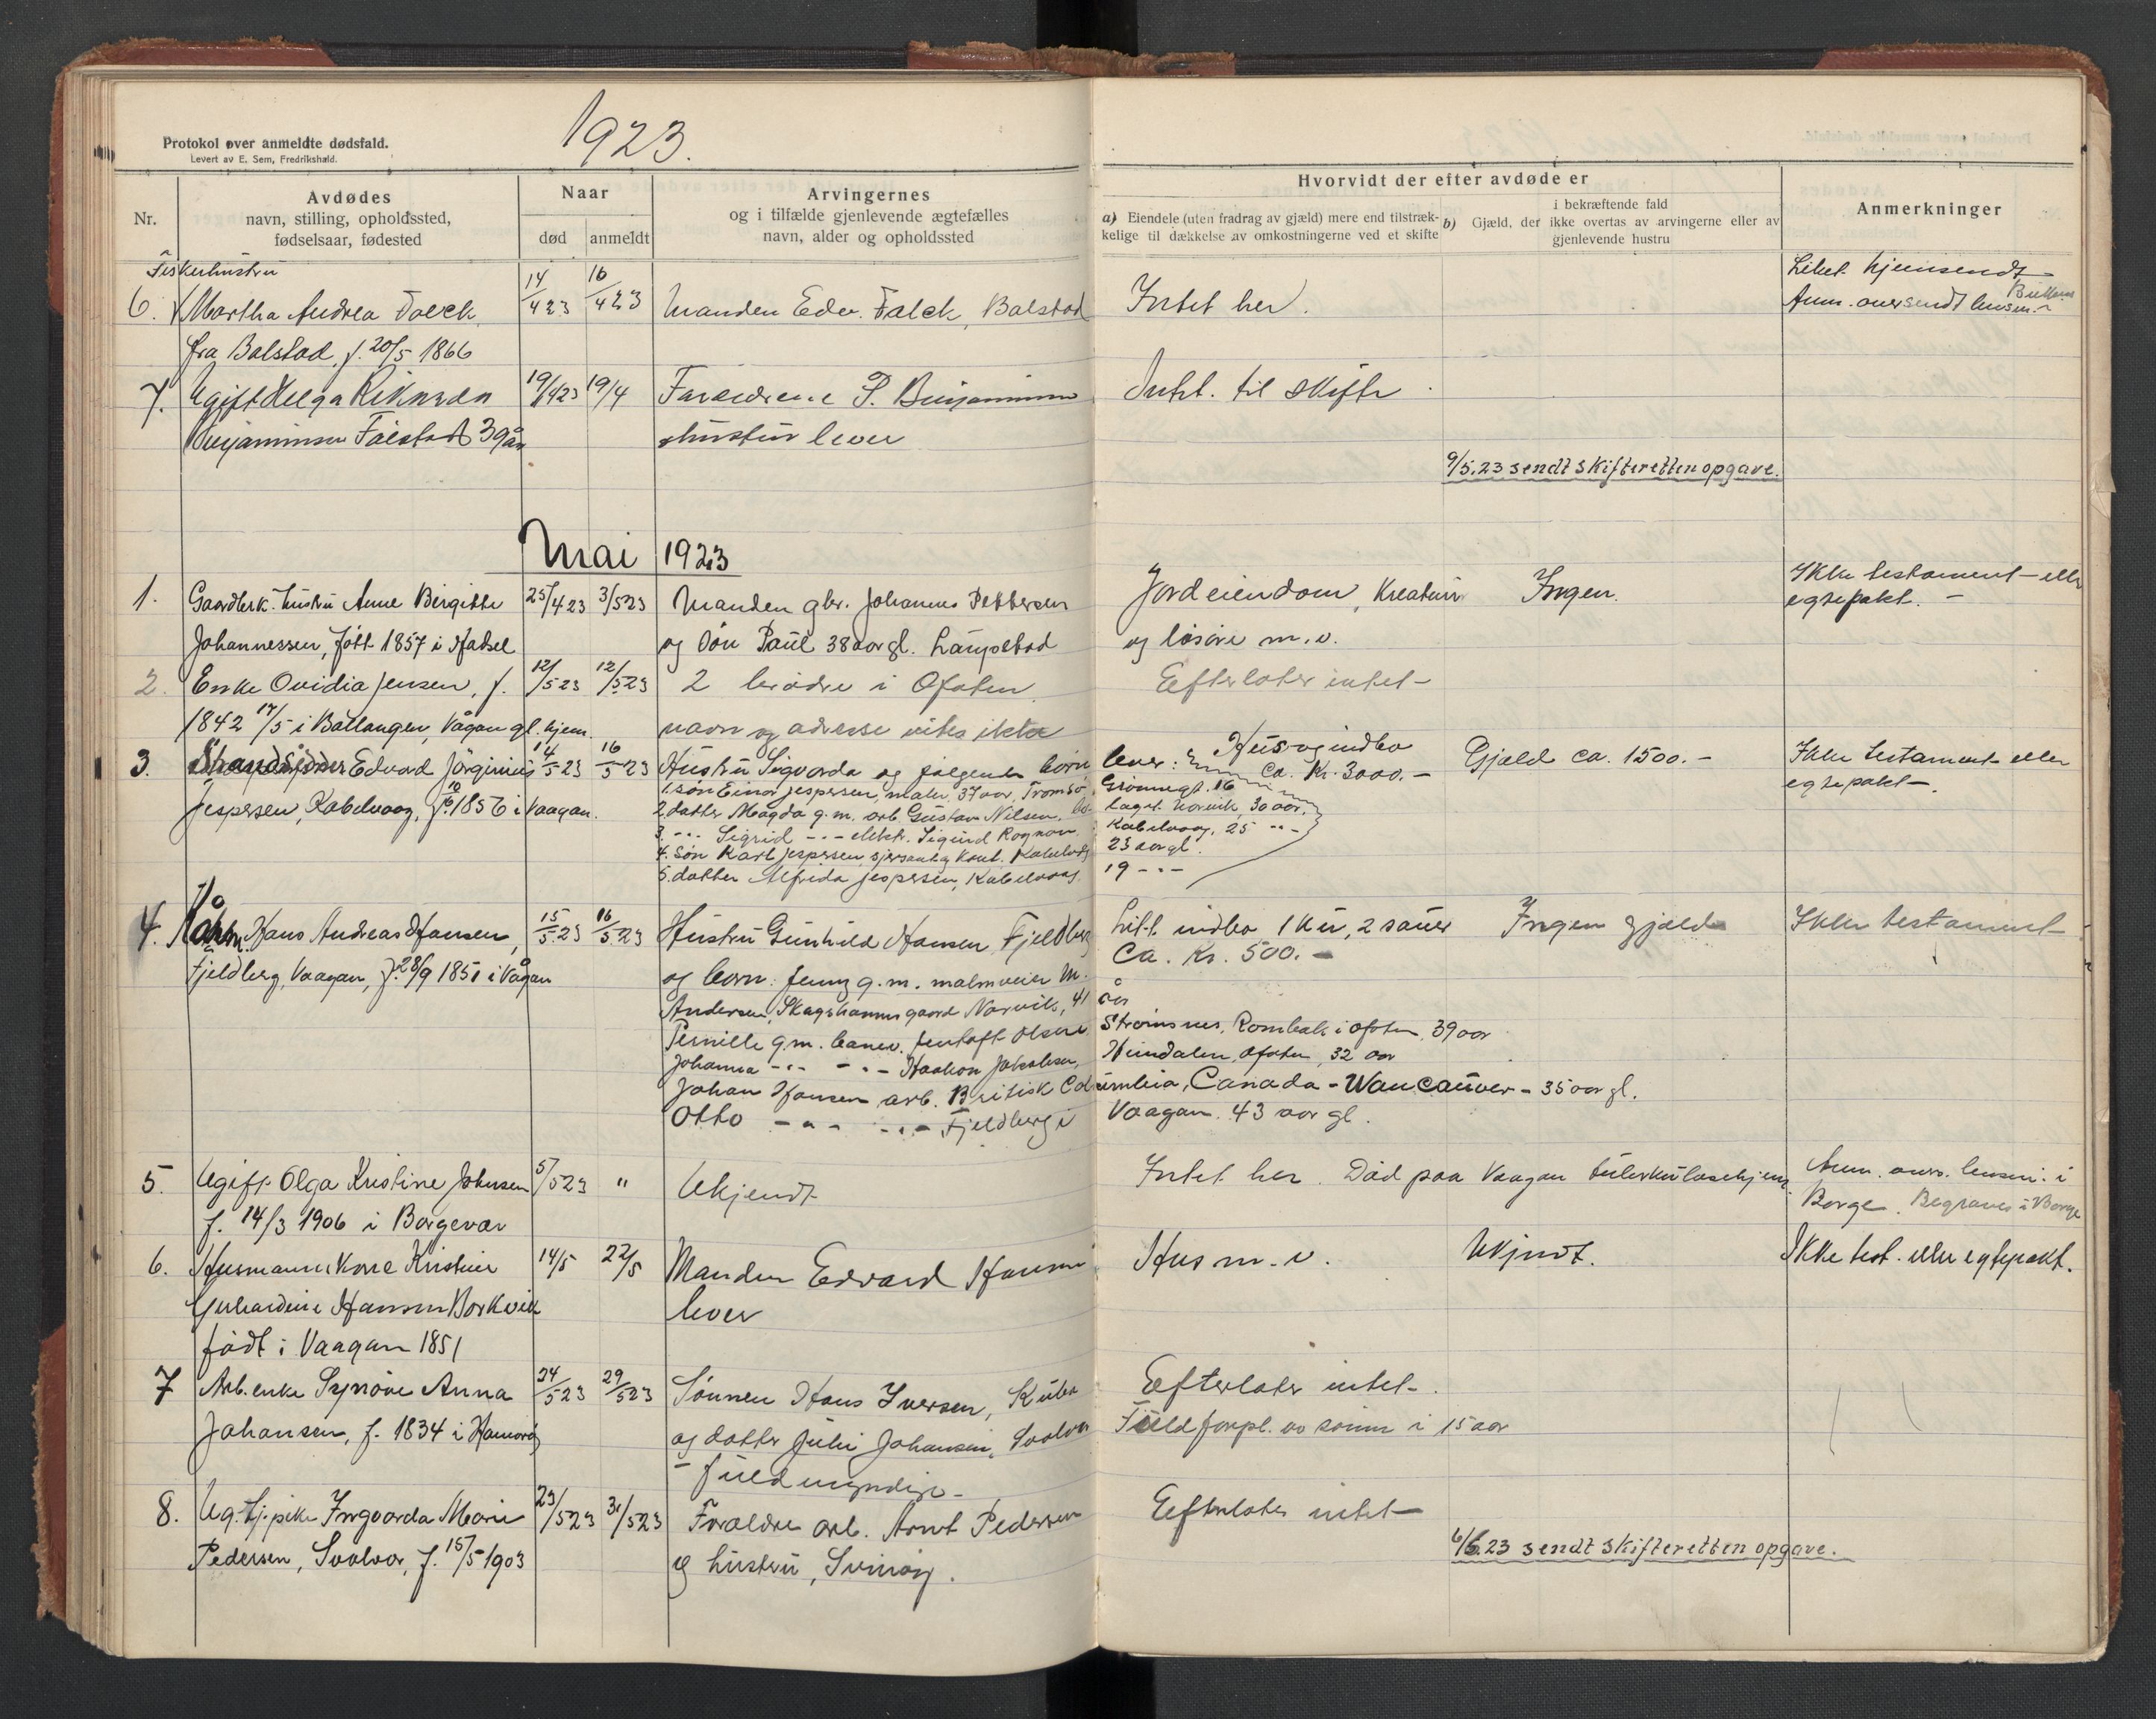 1923.
Protokol over anmeldte dødsfald.
Levert av E. Sem, Fredrikshald.
Nr.
Avdødes
navn, stilling, opholdssted,
fødselsaar, fødested
Naar
død
anmeldt
Arvingernes
og i tilfælde gjenlevende ægtefælles
navn, alder og opholdssted
Hvorvidt der efter avdøde er
a) Eiendele (uten fradrag av gjæld) mere end tilstræk-
kelige til dækkelse av omkostningerne ved et skifte
i bekræftende fald
b) Gjæld, der ikke overtas av arvingerne eller av
gjenlevende hustru
Anmerkninger
Fiskerhustru
6. Martha Andrea Falck 14/4 23 16/4 23 Manden Edv. Falck, Balstad Intet her. Liket hjemsendt
fra Balstad, f. 20/5 1866 Anm. oversendt lensm. i Buksnes
7. Ugift Helga Rikarda 19/4 23 19/4 Forældrene P. Benjaminsen Intet til skifte
Benjaminsen Festad 39 år hustru lever
9/5.23 sendt skifteretten opgave.
Mai 1923
1. Gaardbrk. hustru Anne Birgitte 25/4 23 3/5 23 Manden gbr. Johannes Pettersen Jordeiendom, Kreaturer Ingen. Ikke testament eller
Johannessen, født 1857 i Hadsel og søn Paul 38 aar gl. Laupstad og løsøre m.v. egtepakt. -
2. Enke Ovidia Jensen, f. 12/5 23 12/5 23 2 brødre i Ofoten Efterlater intet
1842 17/5 i Ballangen, Vågan gl. hjem. navn og adresse vites ikke
3. Strandsidder Edvard Jørginius 14/5 23 16/5 23 Hustru Sigvarda og følgende børn lever: Hus og indbo ca. Kr. 3000.- Gjæld ca. 1500.- Ikke testament eller
Jespersen, Kabelvaag, f. 10/6 1856 i Vaagan. 1. søn Einar Jespersen, maler, 37 aar, Tromsø, Grønnegt. 16 egtepakt -.
2. datter Magda g.m. arb. Gustav Nilsen, Narvik, 30 aar.
3. -"- Sigrid -"- elektr. Sigurd Rognan. Kabelvaag, 25 -"-
4. Søn Karl Jespersen, Kabelvåg 23 aar gl.
5. datter Alfrida Jespersen, Kabelvaag. 19 -"-
4. Kårm. Hans Andreas Hansen, 15/5.23 16/5.23 Hustru Gunhild Hansen, Fjeldberg Litt indbo 1 ku, 2 sauer Ingen gjæld Ikke testament
Fjeldberg, Vaagan, f. 28/9 1851 i Vågan Ca. Kr. 500.-
og børn: Jenny g.m. malmveier M.
Andersen, Skagshamnsgaard Narvik, 41 år
Pernille g.m. banev. Jentoft Olsen Strømsnes, Rombak i Ofoten, 39 aar
Johanna -"- -"- Haakon Jakobsen, Hundalen, Ofoten, 32 aar
Johan Hansen arb. Britisk Columbia, Canada - Wancauver - 35 aar gl.
Otto -"- -"- Fjeldberg i Vaagan. 43 aar gl.
5. Ugift Olga Kristine Johnsen 5/5 23 " Ukjendt Intet her. Død paa Vaagan tuberkulosehjem. Anm. overs. lensm. i
f. 14/3 1906 i Borgevær Borge. Begraves i Borge
6. Husmannskone Kristine 14/5 22/5 Manden Edvard Hansen Hus m.v. Ukjendt. Ikke test. eller egtepakt.
Gerhardine Hansen Borkvik lever
født i Vaagan 1851
7 Arb.enke Synøve Anna 24/5 23 29/5 23 Sønnen Hans Iversen, Efterlater intet.
Johansen, f. 1834 i Hamarøy og datter Juli Johansen, Svolvær Fuld forpl. av sønn i 15 aar
- fuldmyndige -
8. Ug. tj.pike Ingvarda Marie 23/5 23 31/5 23 Forældre arb. Arnt Pedersen Efterlater intet
Pedersen, Svolvær, f. 15/5 1903 og hustru, Svinøy.
6/6.23 sendt skifteretten opgave.